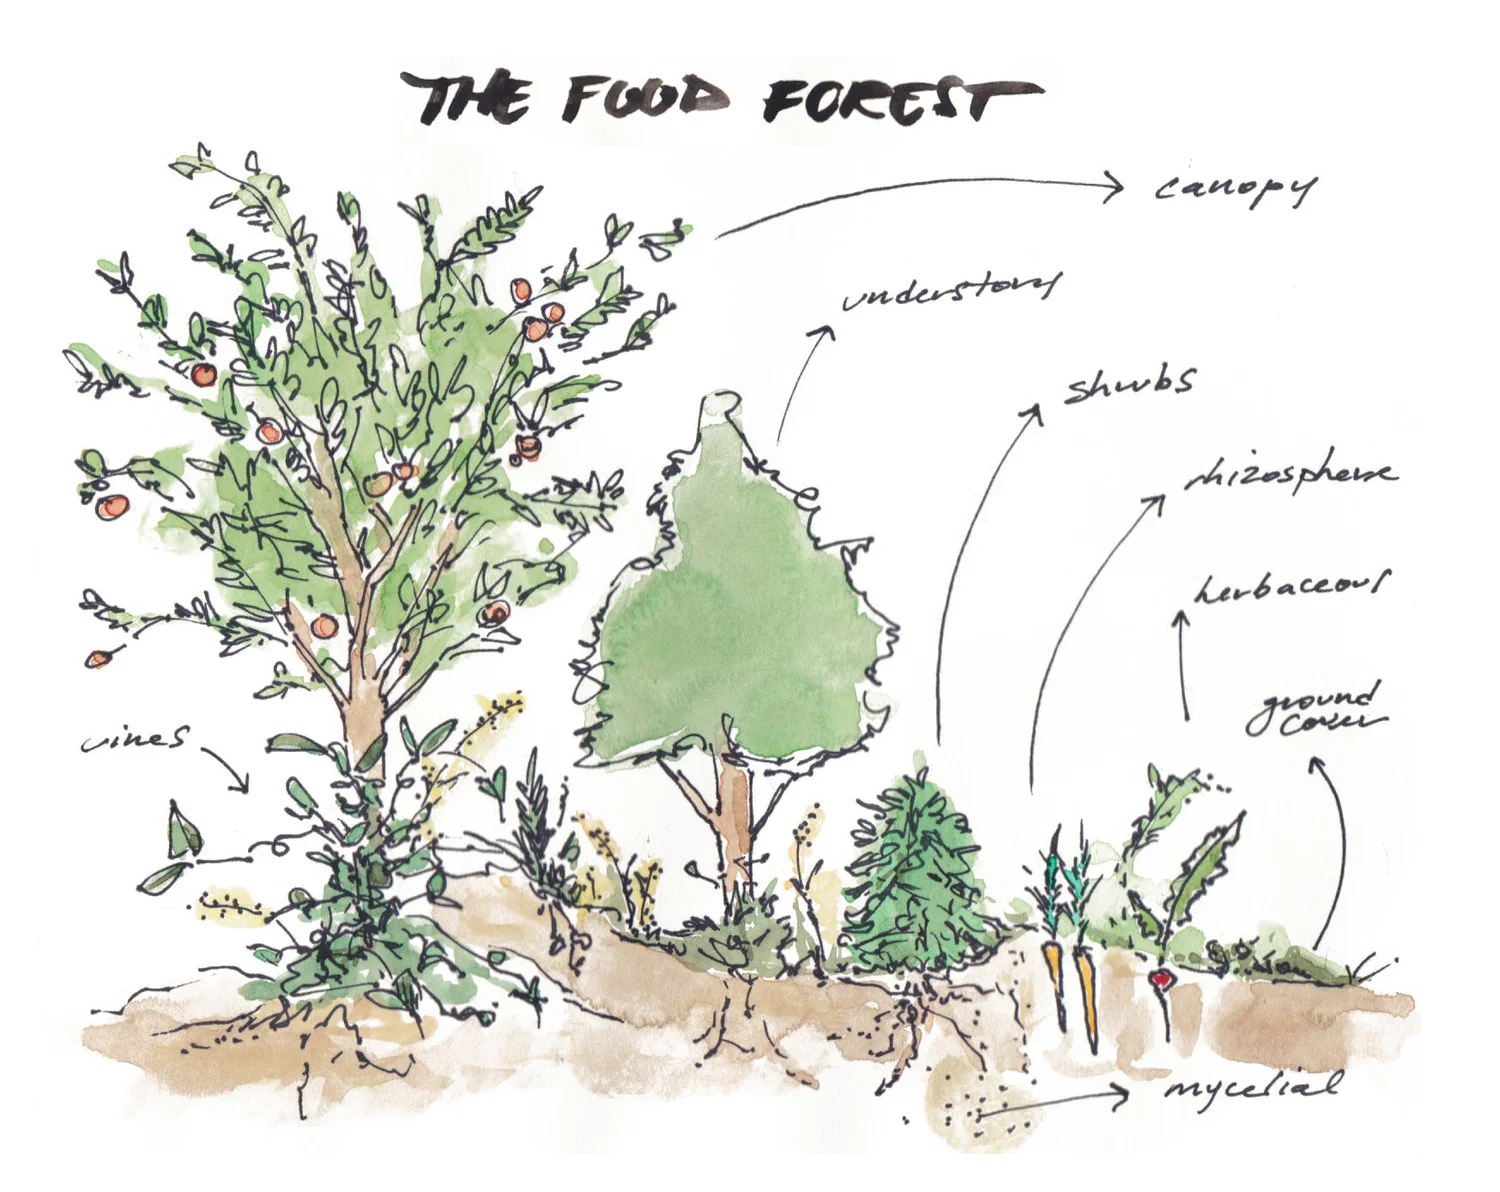 THE FOOD FOREST
canopy
understory
shrubs
rhizosphere
herbaceous
ground
cover
vines
mycelial